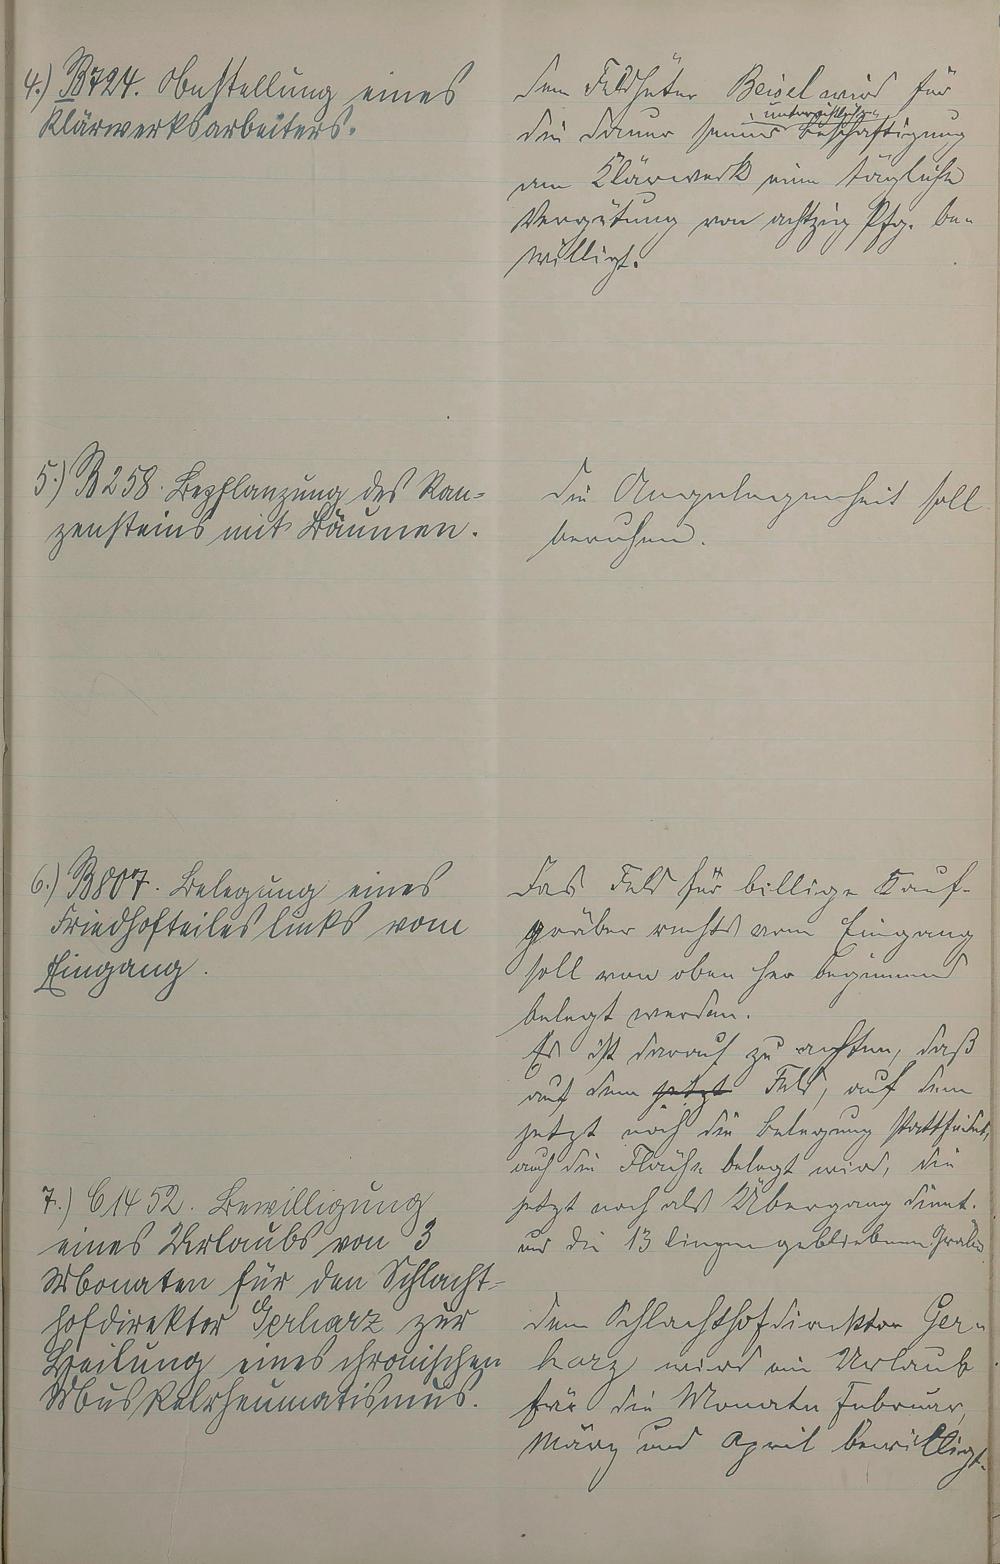 4.) B 724. Bestellung eines
Klärwerksarbeiters.
Dem Feldhüter Beisel wird für
die Dauer seiner
Beschäftigung
am Klärwerk eine tägliche
Vergütung von achtzig Pfg. be-
willigt.
5.) B 258. Bepflanzung des Ran-
zensteins mit Bäumen.
Die Angelegenheit soll
beruhen.
6.) B 807. Belegung eines
Friedhofteiles links vom
Eingang.
Das Feld für billige Kauf-
gräber rechts vom Eingang
soll von oben her beginnend
belegt werden.
Es ist darauf zu achten, daß
auf dem jetzt Feld, auf dem
jetzt noch die Belegung stattfindet,
auch die Fläche belegt wird, die
jetzt noch als Übergang dient.
und die 13 liegengebliebenen Gräber
7.) C 1452. Bewilligung
eines Urlaubs von 3
Monaten für den Schlacht-
hofdirektor Gerharz zur
Heilung eines chronischen
Muskelrheumatismus.
Dem Schlachthofdirektor Ger-
harz wird ein Urlaub
für die Monate Februar,
März und April bewilligt.